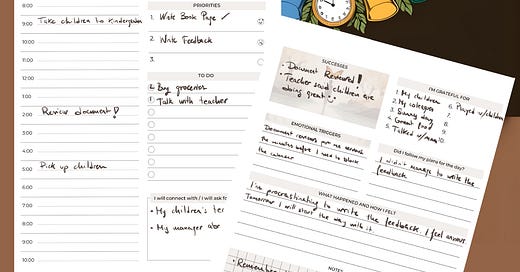 8:00
9:00 Take children to kindergarten
10:00
11:00
12:00
1:00
2:00 Review document!
3:00
4:00
5:00 Pick up children
6:00
7:00
8:00
9:00
10:00
PRIORITIES
1. Write Book Page ✓
2. Write Feedback
3.
TO DO
② Buy groceries
① Talk with teacher
I will connect with / I will ask fo
• My children's te
• My manager abo
SUCCESSES
• Document Reviewed!
• Teacher said children are
doing great
EMOTIONAL TRIGGERS
Document reviews put me
the minutes before I need to block
the calendar
I'M GRATEFUL FOR
1. My children
2. My colleagues
3. Sunny day
4. Great food
5. Talked w/mom
6. Played w/children
7.
8.
9.
10.
Did I follow my plans for the day?
I didn't manage to write the
feedback.
WHAT HAPPENED AND HOW I FELT
I'm procrastinating to write the feedback. I feel anxious
Tomorrow I will start the day with it.
NOTES
• Remember